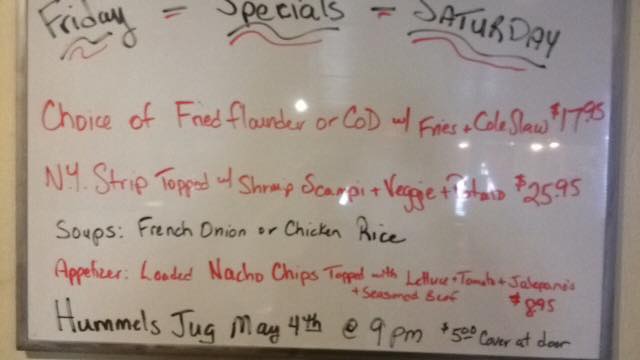 Friday = Specials = SATURDAY
Choice of Fried flounder or COD w/ Fries + Cole Slaw $17.95
N.Y. Strip Topped w/ Shrimp Scampi + Veggie + Potato $25.95
Soups: French Onion or Chicken Rice
Appetizer: Loaded Nacho Chips Topped with Lettuce + Tomato + Jalepano's
+ Seasoned Beef $8.95
Hummels Jug May 4th @ 9pm $5.00 Cover at door